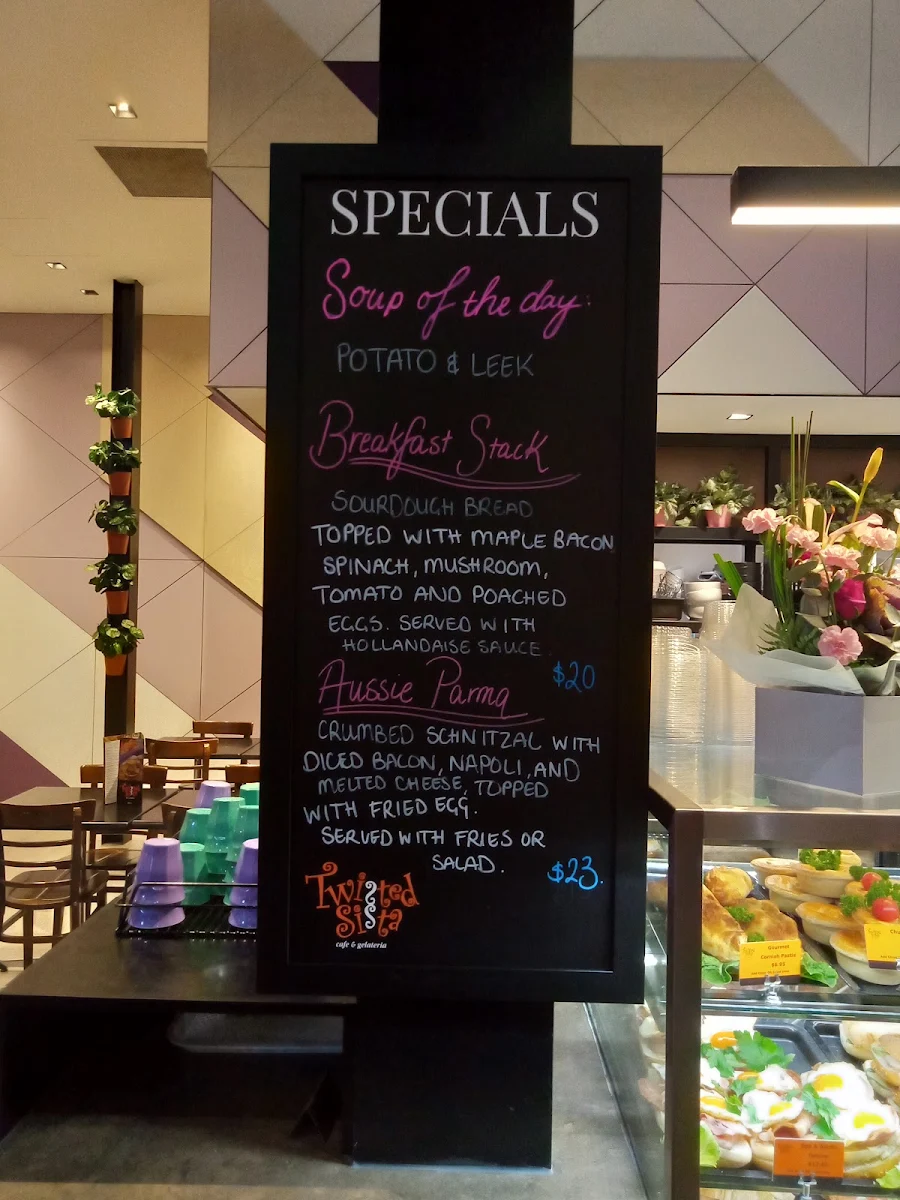 SPECIALS
Soup of the day:
POTATO & LEEK
Breakfast Stack
SOURDOUGH BREAD
TOPPED WITH MAPLE BACON
SPINACH, MUSHROOM,
TOMATO AND POACHED
EGGS. SERVED WITH
HOLLANDAISE SAUCE.
$20
Aussie Parma
CRUMBED SCHNITZAL WITH
DICED BACON, NAPOLI, AND
MELTED CHEESE, TOPPED
WITH FRIED EGG.
SERVED WITH FRIES OR
SALAD.
$23.
Twisted
Sista
cafe & gelateria
Gourmet
Cornish Pastie
$6.95